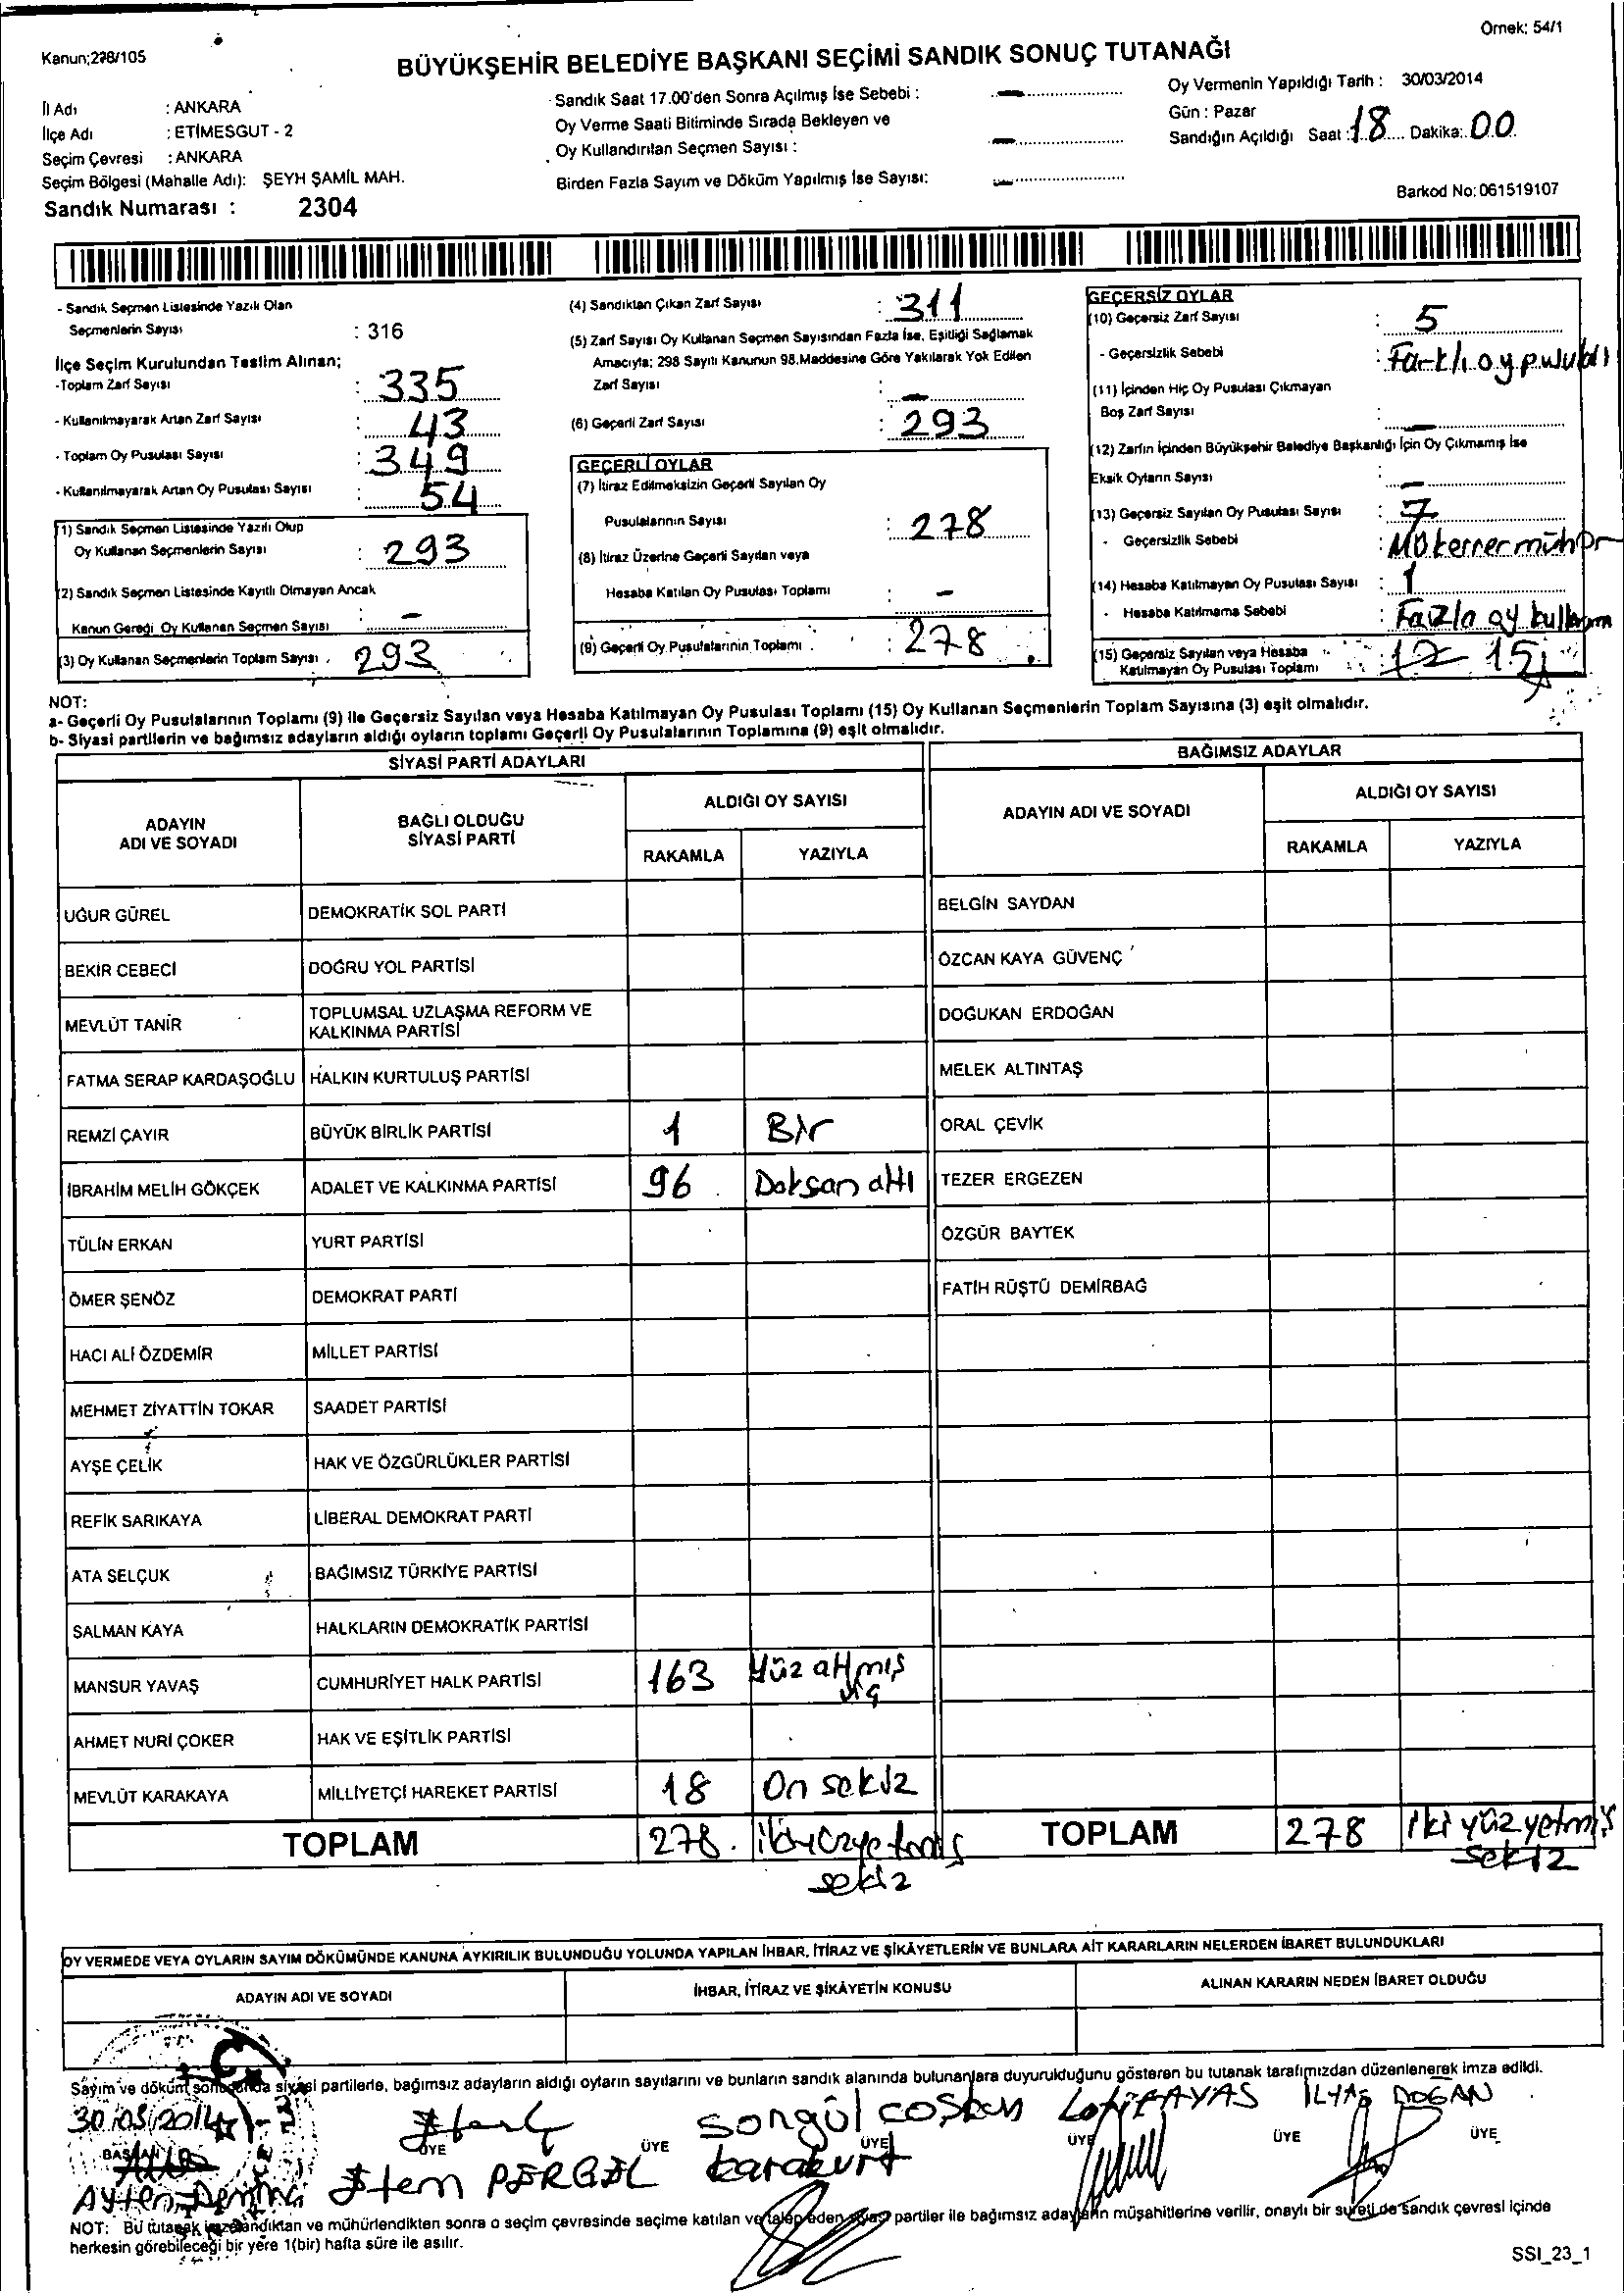 Örnek: 54/1
Kanun:298/105
BÜYÜKŞEHİR BELEDİYE BAŞKANI SEÇİMİ SANDIK SONUÇ TUTANAĞI
İl Adı : ANKARA
İlçe Adı : ETİMESGUT - 2
Seçim Çevresi : ANKARA
Seçim Bölgesi (Mahalle Adı): ŞEYH ŞAMİL MAH.
Sandık Numarası : 2304
Sandık Saat 17.00'den Sonra Açılmış İse Sebebi : -
Oy Verme Saati Bitiminde Sırada Bekleyen ve
Oy Kullandırılan Seçmen Sayısı : -
Birden Fazla Sayım ve Döküm Yapılmış İse Sayısı: -
Oy Vermenin Yapıldığı Tarih : 30/03/2014
Gün : Pazar
Sandığın Açıldığı Saat : 18 Dakika: 00
Barkod No: 061519107
- Sandık Seçmen Listesinde Yazılı Olan
Seçmenlerin Sayısı : 316
İlçe Seçim Kurulundan Teslim Alınan;
-Toplam Zarf Sayısı : 335
- Kullanılmayarak Artan Zarf Sayısı : 43
- Toplam Oy Pusulası Sayısı : 349
- Kullanılmayarak Artan Oy Pusulası Sayısı : 54
(1) Sandık Seçmen Listesinde Yazılı Olup
Oy Kullanan Seçmenlerin Sayısı : 293
(2) Sandık Seçmen Listesinde Kayıtlı Olmayan Ancak
Kanun Gereği Oy Kullanan Seçmen Sayısı : -
(3) Oy Kullanan Seçmenlerin Toplam Sayısı . 293
(4) Sandıktan Çıkan Zarf Sayısı : 311
(5) Zarf Sayısı Oy Kullanan Seçmen Sayısından Fazla İse, Eşitliği Sağlamak
Amacıyla; 298 Sayılı Kanunun 98.Maddesine Göre Yakılarak Yok Edilen
Zarf Sayısı : -
(6) Geçerli Zarf Sayısı : 293
GEÇERLİ OYLAR
(7) İtiraz Edilmeksizin Geçerli Sayılan Oy
Pusulalarının Sayısı : 278
(8) İtiraz Üzerine Geçerli Sayılan veya
Hesaba Katılan Oy Pusulası Toplamı : -
(9) Geçerli Oy Pusulalarının Toplamı : 278
GEÇERSİZ OYLAR
(10) Geçersiz Zarf Sayısı : 5
- Geçersizlik Sebebi : Farklı oy pusulası
(11) İçinden Hiç Oy Pusulası Çıkmayan
Boş Zarf Sayısı : -
(12) Zarfın İçinden Büyükşehir Belediye Başkanlığı İçin Oy Çıkmamış İse
Eksik Oyların Sayısı : -
(13) Geçersiz Sayılan Oy Pusulası Sayısı : 7
- Geçersizlik Sebebi : Mükerrer mühür
(14) Hesaba Katılmayan Oy Pusulası Sayısı : 1
- Hesaba Katılmama Sebebi : Fazla oy kullanım
(15) Geçersiz Sayılan veya Hesaba
Katılmayan Oy Pusulası Toplamı : 12 15
NOT:
a- Geçerli Oy Pusulalarının Toplamı (9) ile Geçersiz Sayılan veya Hesaba Katılmayan Oy Pusulası Toplamı (15) Oy Kullanan Seçmenlerin Toplam Sayısına (3) eşit olmalıdır.
b- Siyasi partilerin ve bağımsız adayların aldığı oyların toplamı Geçerli Oy Pusulalarının Toplamına (9) eşit olmalıdır.
SİYASİ PARTİ ADAYLARI
ADAYIN ADI VE SOYADI BAĞLI OLDUĞU SİYASİ PARTİ ALDIĞI OY SAYISI
RAKAMLA YAZIYLA
UĞUR GÜREL DEMOKRATİK SOL PARTİ
BEKİR CEBECİ DOĞRU YOL PARTİSİ
MEVLÜT TANİR TOPLUMSAL UZLAŞMA REFORM VE KALKINMA PARTİSİ
FATMA SERAP KARDAŞOĞLU HALKIN KURTULUŞ PARTİSİ
REMZİ ÇAYIR BÜYÜK BİRLİK PARTİSİ 1 Bir
İBRAHİM MELİH GÖKÇEK ADALET VE KALKINMA PARTİSİ 96 Doksan altı
TÜLİN ERKAN YURT PARTİSİ
ÖMER ŞENÖZ DEMOKRAT PARTİ
HACI ALİ ÖZDEMİR MİLLET PARTİSİ
MEHMET ZİYATTİN TOKAR SAADET PARTİSİ
AYŞE ÇELİK HAK VE ÖZGÜRLÜKLER PARTİSİ
REFİK SARIKAYA LİBERAL DEMOKRAT PARTİ
ATA SELÇUK BAĞIMSIZ TÜRKİYE PARTİSİ
SALMAN KAYA HALKLARIN DEMOKRATİK PARTİSİ
MANSUR YAVAŞ CUMHURİYET HALK PARTİSİ 163 Yüz altmış üç
AHMET NURİ ÇOKER HAK VE EŞİTLİK PARTİSİ
MEVLÜT KARAKAYA MİLLİYETÇİ HAREKET PARTİSİ 18 On sekiz
TOPLAM 278 ikiyüzyetmiş sekiz
BAĞIMSIZ ADAYLAR
ADAYIN ADI VE SOYADI ALDIĞI OY SAYISI
RAKAMLA YAZIYLA
BELGİN SAYDAN
ÖZCAN KAYA GÜVENÇ
DOĞUKAN ERDOĞAN
MELEK ALTINTAŞ
ORAL ÇEVİK
TEZER ERGEZEN
ÖZGÜR BAYTEK
FATİH RÜŞTÜ DEMİRBAĞ
TOPLAM 278 iki yüz yetmiş sekiz
OY VERMEDE VEYA OYLARIN SAYIM DÖKÜMÜNDE KANUNA AYKIRILIK BULUNDUĞU YOLUNDA YAPILAN İHBAR, İTİRAZ VE ŞİKÂYETLERİN VE BUNLARA AİT KARARLARIN NELERDEN İBARET BULUNDUKLARI
ADAYIN ADI VE SOYADI İHBAR, İTİRAZ VE ŞİKÂYETİN KONUSU ALINAN KARARIN NEDEN İBARET OLDUĞU
Sayım ve döküm sonucunda siyasi partilerle, bağımsız adayların aldığı oyların sayılarını ve bunların sandık alanında bulunanlara duyurulduğunu gösteren bu tutanak tarafımızdan düzenlenerek imza edildi.
30/03/2014
songül coşkun karakurt
İLYAS DOĞAN
BAŞKAN ÜYE ÜYE ÜYE ÜYE ÜYE ÜYE
NOT: Bu tutanak imzalandıktan ve mühürlendikten sonra o seçim çevresinde seçime katılan ve talep eden siyasi partiler ile bağımsız adayların müşahitlerine verilir, onaylı bir sureti de sandık çevresi içinde
herkesin görebileceği bir yere 1(bir) hafta süre ile asılır.
SSI_23_1